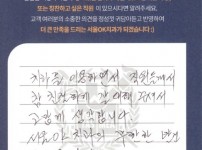 또는 칭찬하고 싶은 직원이 있으시다면 알려주세요.
고객 여러분의 소중한 의견을 정성껏 귀담아듣고 반영하여
더 큰 만족을 드리는 서울OK치과가 되겠습니다:)
치과를 이용하면서 직원분께서
참 친절하게 잘 해주셔서
고맙게 생각합니다
서울 OK 치과의 무한한 발전